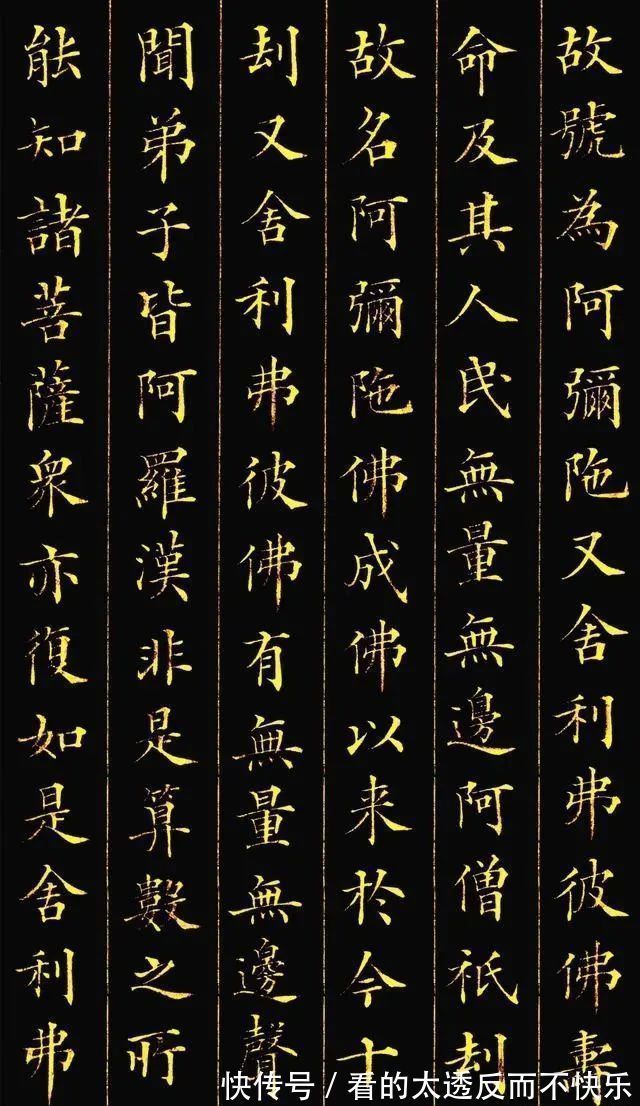 故號為阿彌陁又舍利弗彼佛壽
命及其人民無量無邊阿僧祇刦
故名阿彌陁佛成佛以来於今十
刦又舍利弗彼佛有無量無邊聲
聞弟子皆阿羅漢非是算數之所
能知諸菩薩衆亦復如是舍利弗
快传号 / 看的太透反而不快乐